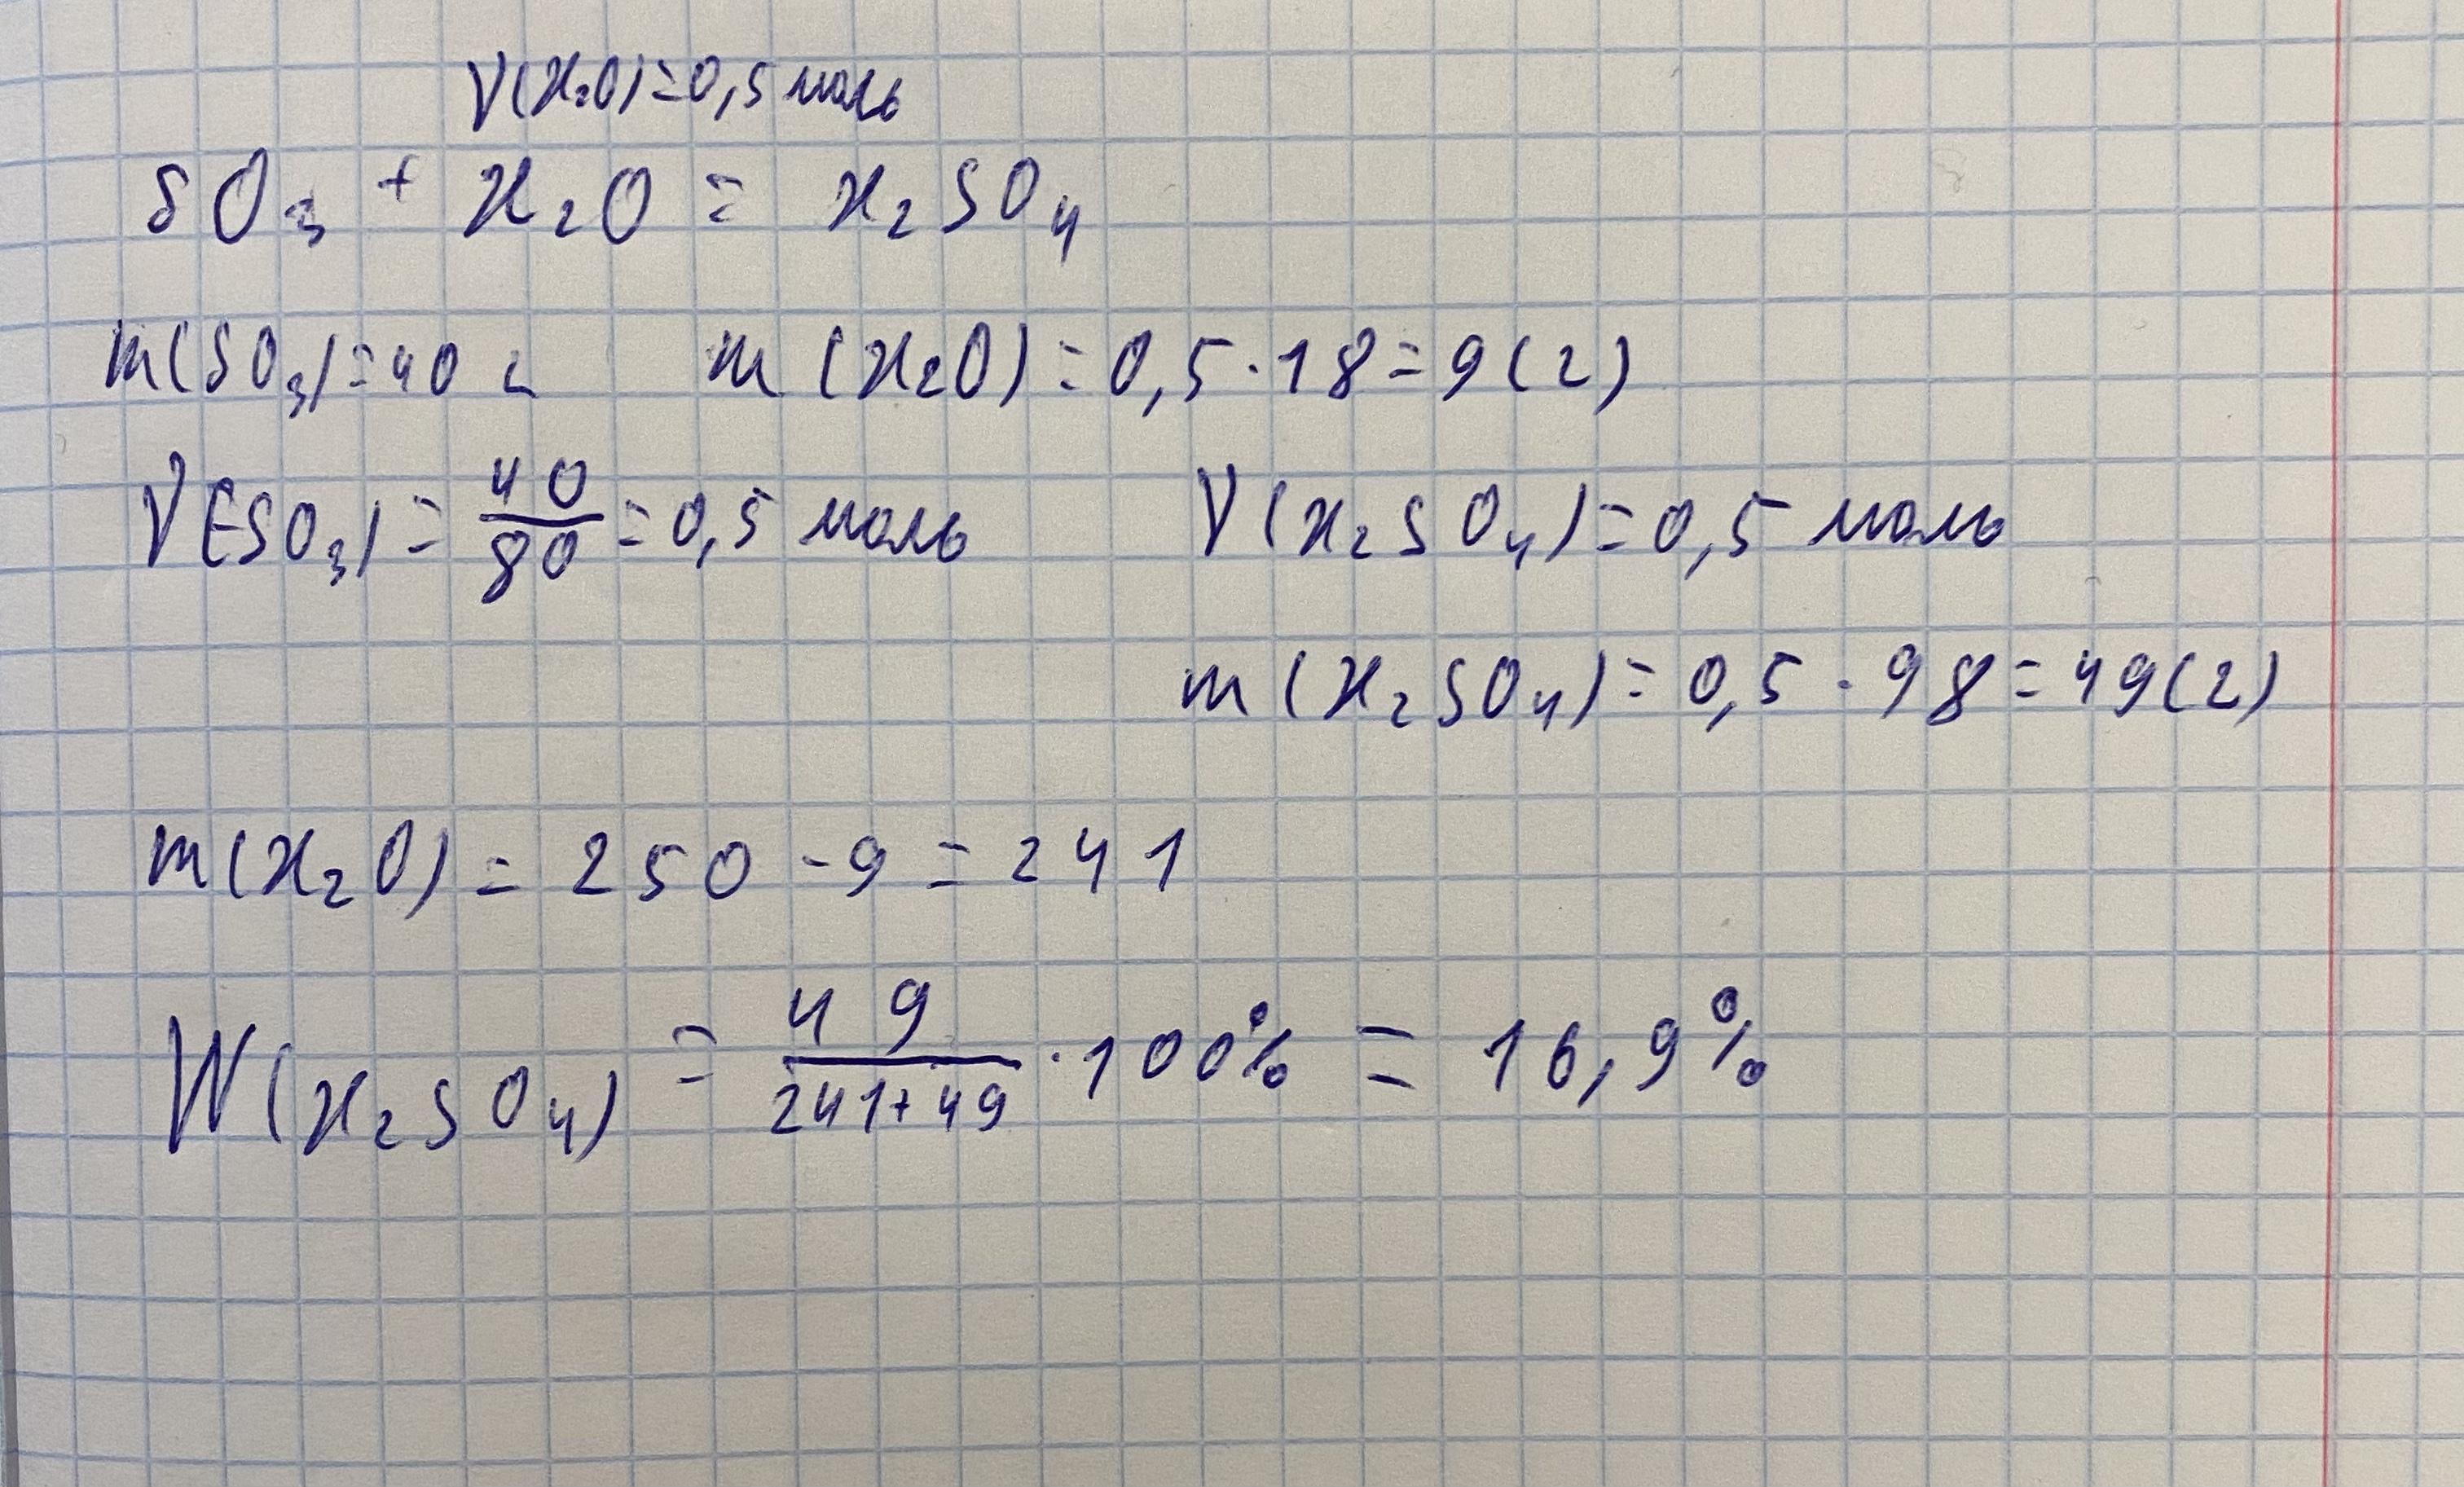 ν(H₂O)=0,5 моль
SO₃ + H₂O = H₂SO₄
m(SO₃)=40 г m(H₂O)=0,5·18=9(г)
ν(SO₃)=40/80=0,5 моль ν(H₂SO₄)=0,5 моль
m(H₂SO₄)=0,5·98=49(г)
m(H₂O)=250-9=241
W(H₂SO₄)=49/(241+49)·100%=16,9%